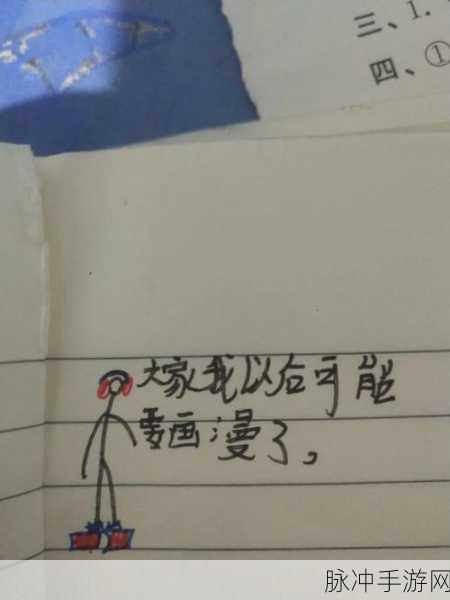 三、1.
四、①
大家我以后可能
要画漫了，
脉冲手游网